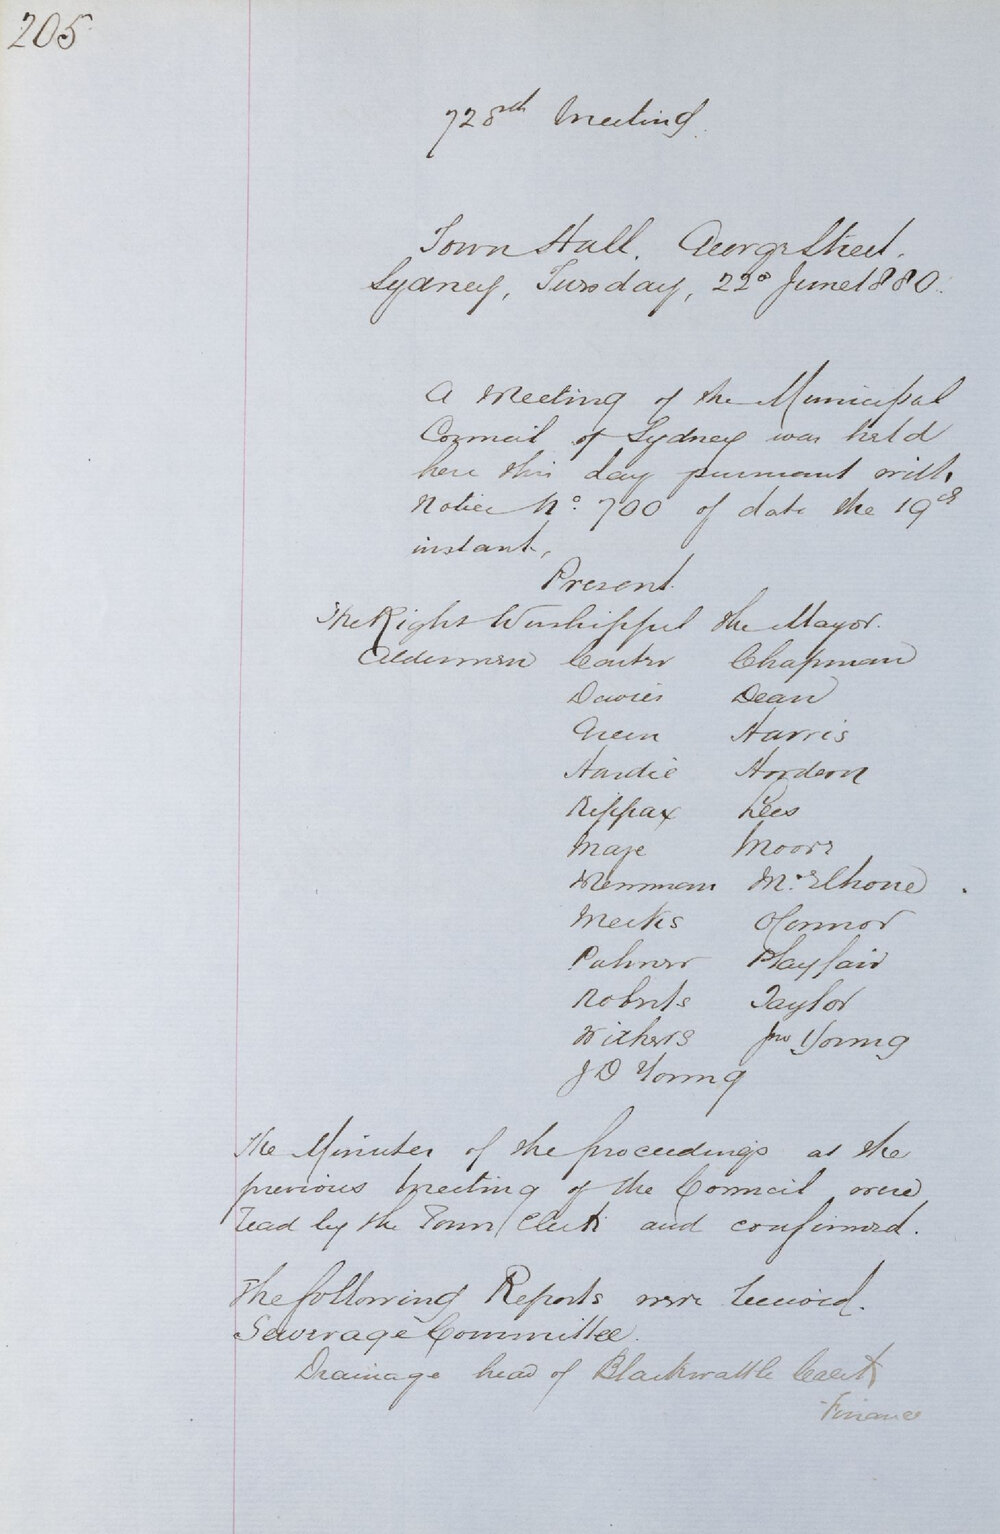 205
728th Meeting
Town Hall, George Street,
Sydney, Tuesday, 22d June 1880.
A Meeting of the Municipal
Council of Sydney was held
here this day pursuant with
Notice No. 700 of date the 19th
instant,
Present
The Right Worshipful the Mayor.
Aldermen Carter Chapman
Davies Dean
Green Harris
Hardie Hordern
Kippax Lees
Moore
Merriman McElhone
Meeks O'Connor
Palmer Playfair
Roberts Taylor
Withers Jno Young
J D Young
The Minutes of the proceedings at the
previous Meeting of the Council were
read by the Town Clerk and confirmed.
The following Reports were received.
Sewerage Committee.
Drainage head of Blackwattle Creek
Finance